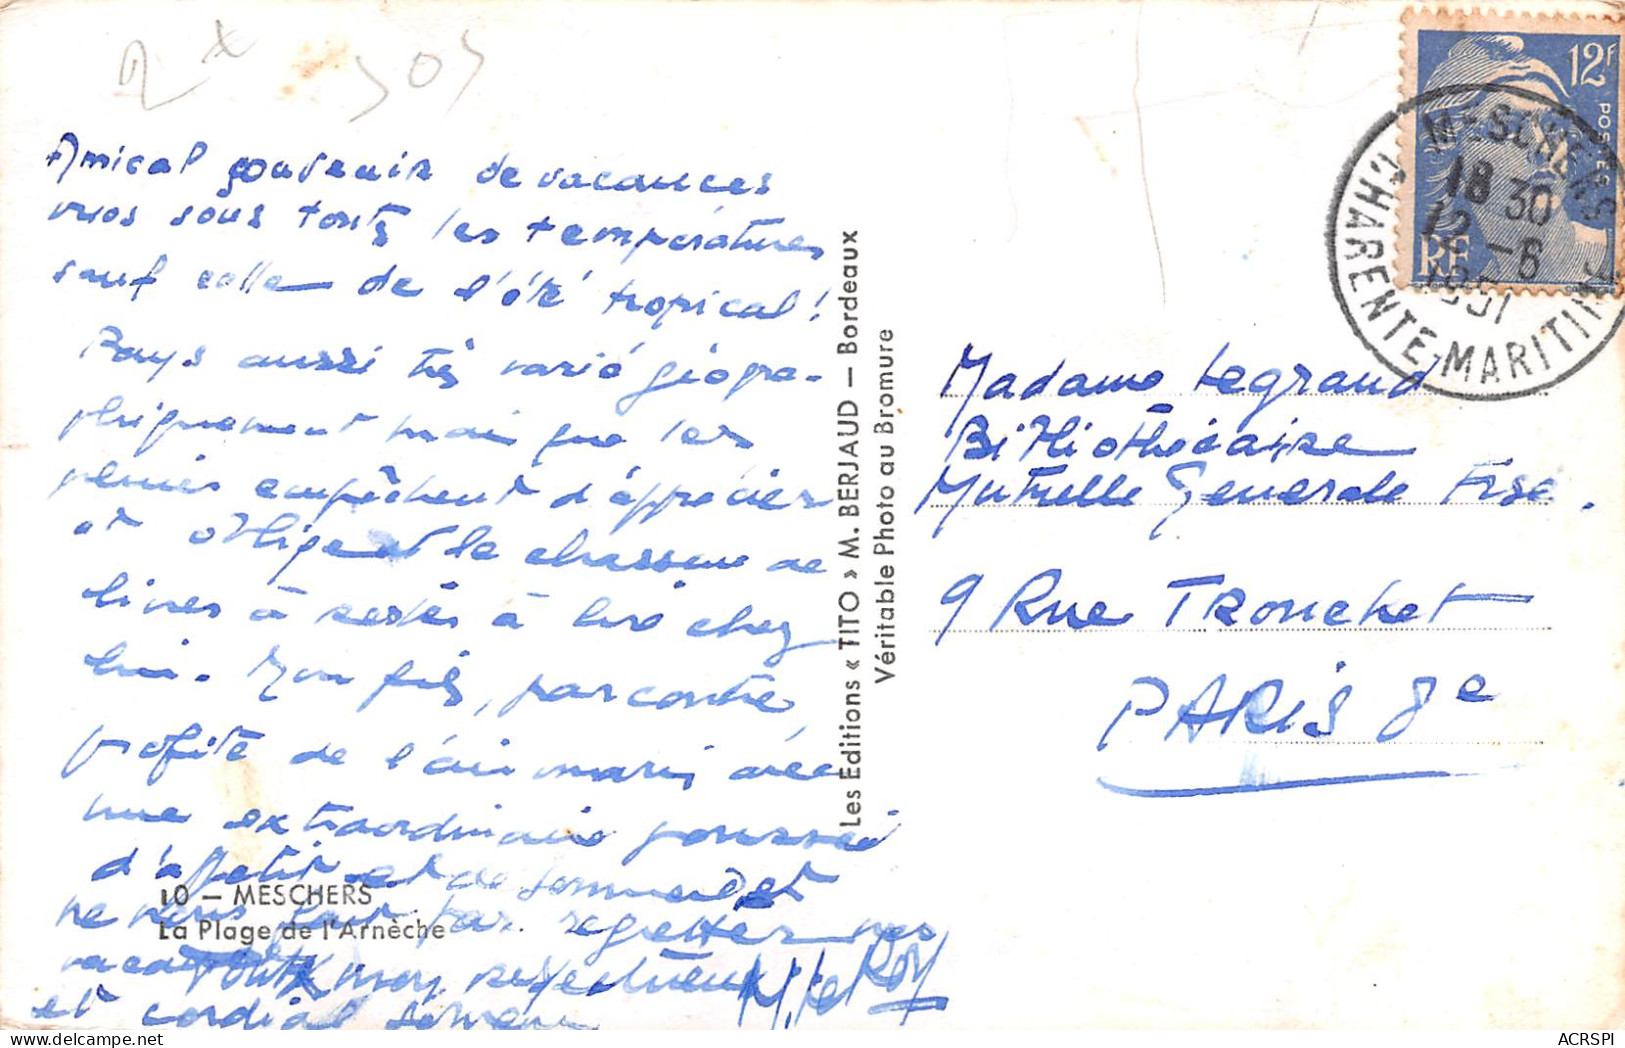 2x 505
Amical souvenir de vacances
vues sous toutes les températures
sauf celle de l'été tropical !
Pays aussi très varié géogra-
phiquement mais que les
pluies empêchent d'apprécier
et obligent le chasseur de
livres à rester à lire chez
lui. Mon fils, par contre,
profite de l'air marin avec
une extraordinaire poussée
d'appétit et de sommeil et
ne nous fait pas regretter nos
vacances. Toute mon respectueux
et cordial souvenir
M. Le Roy
10 — MESCHERS
La Plage de l'Arnèche
Les Editions « TITO » M. BERJAUD — Bordeaux
Véritable Photo au Bromure
12F
POSTES
RF
MESCHERS
18 30
12 -6
1951
CHARENTE-MARITIME
Madame Legrand
Bibliothécaire
Mutuelle Generale Frse.
9 Rue Tronchet
PARIS 8e
ACRSPI